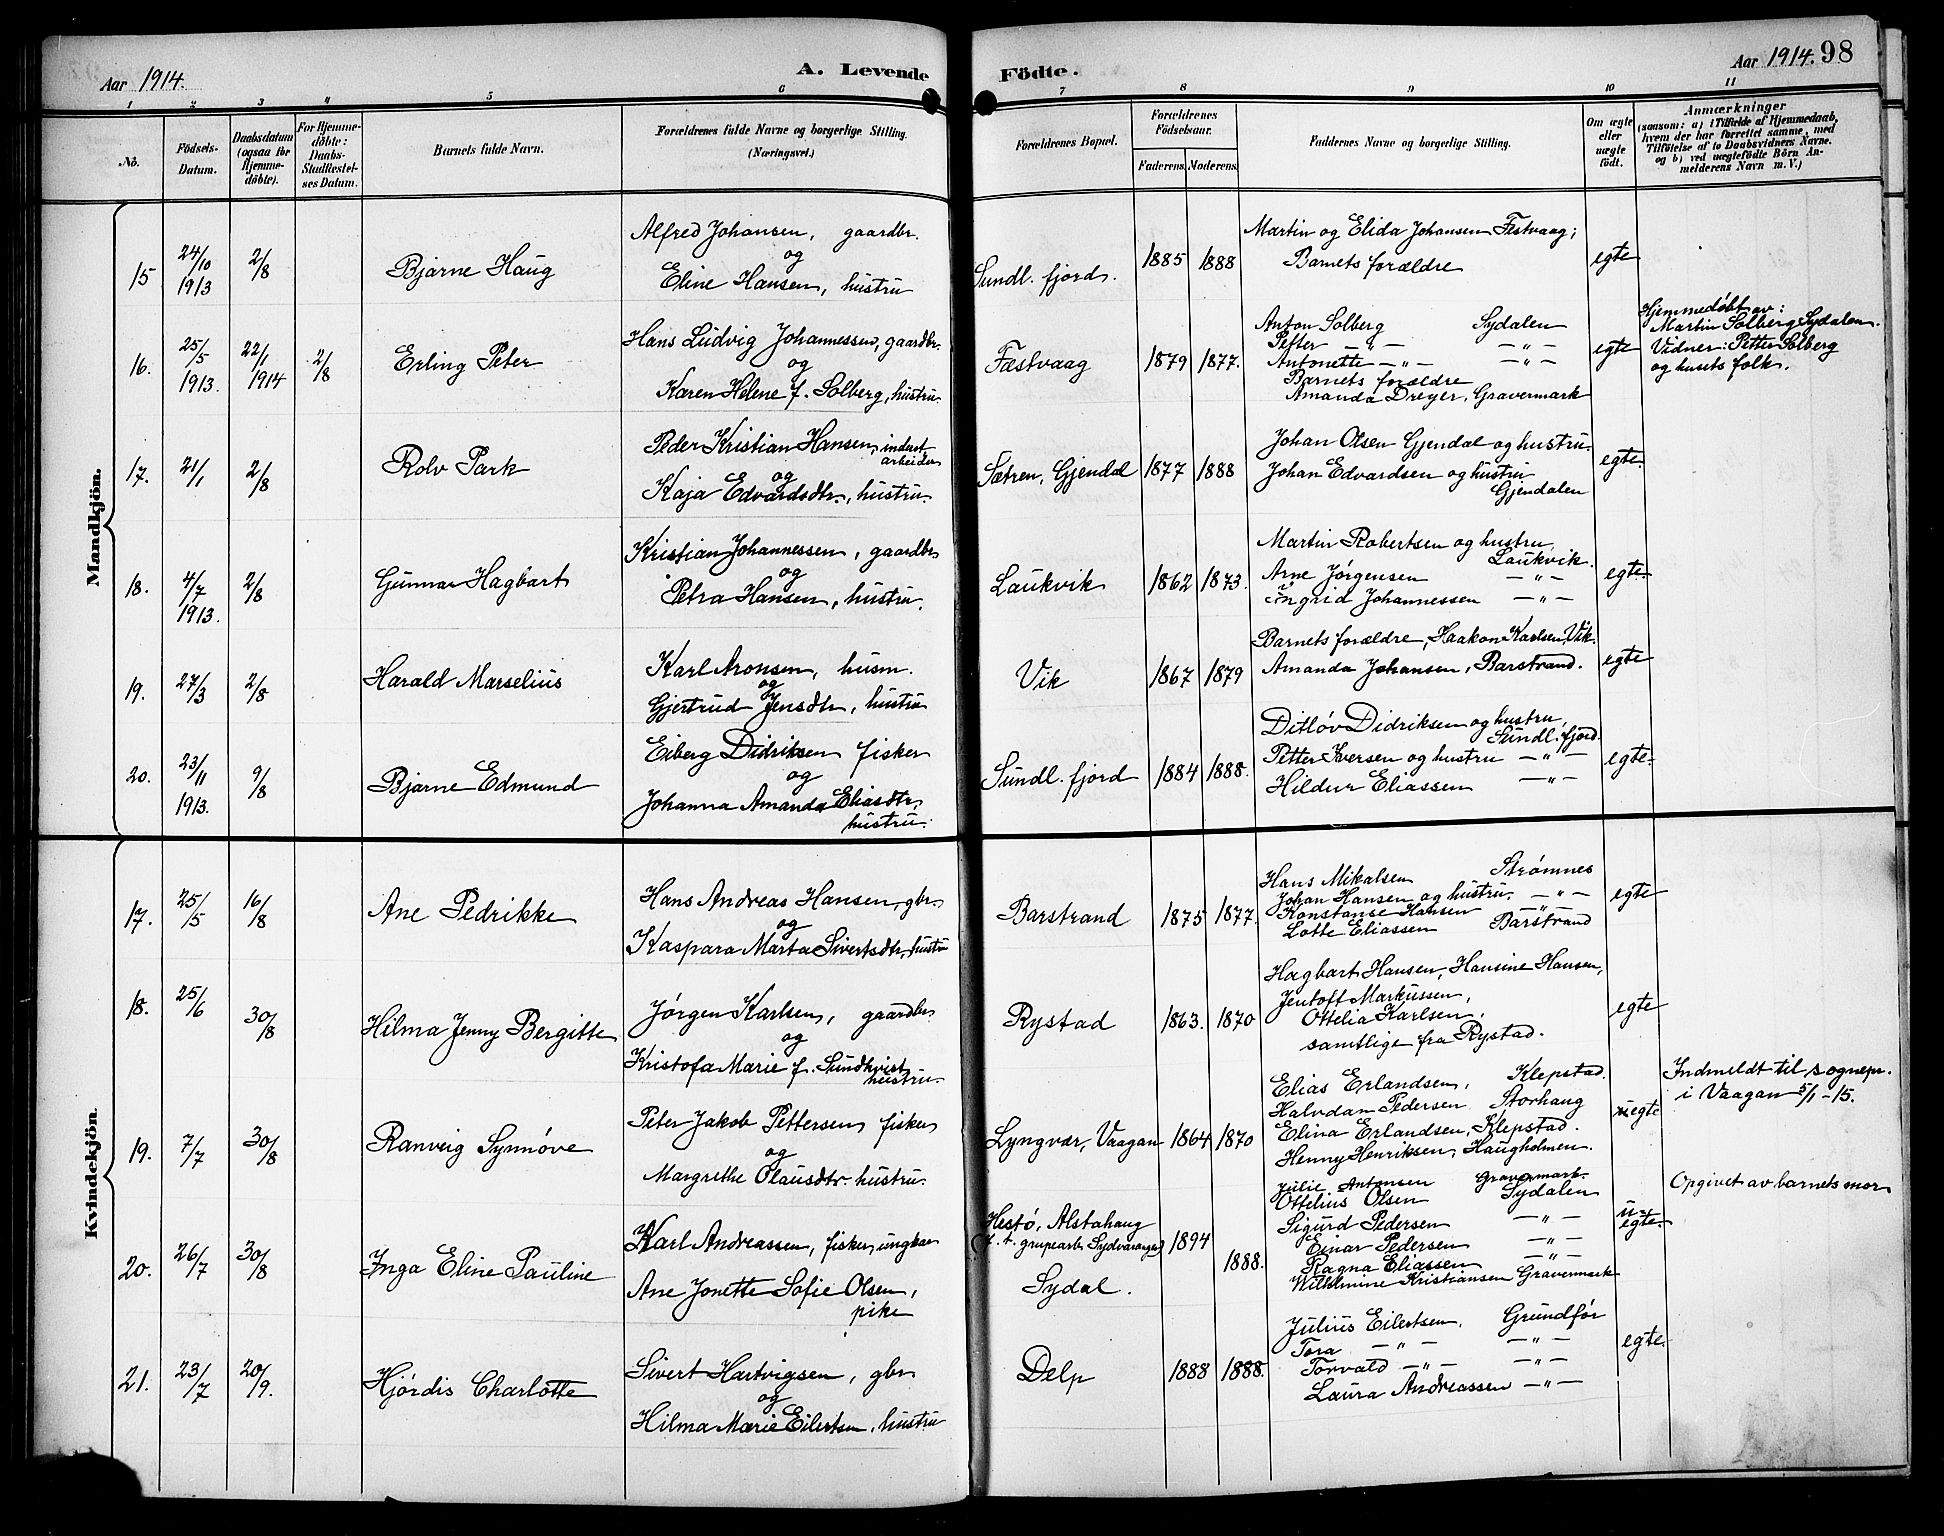 Aar 1914.
A. Levende
Födte.
Aar 1914. 98
1 2 3 4 5 6 7 8 9 10 11
No.
Födsels-
Datum.
Daabsdatum
(ogsaa for
Hjemme-
döbte).
For Hjemme-
döbte:
Daabs-
Stadfæstel-
ses Datum.
Barnets fulde Navn.
Forældrenes fulde Navne og borgerlige Stilling.
(Næringsvei.)
Forældrenes Bopæl.
Forældrenes
Födselsaar.
Faderens. Moderens.
Faddernes Navne og borgerlige Stilling.
Om ægte
eller
uægte
födt.
Anmærkninger
(saasom: a) i Tilfælde af Hjemmedaab,
hvem der har forrettet samme, med
Tilföielse af to Daabsvidners Navne.
og b) ved uægtefödte Börn An-
melderens Navn m. V.)
Mandkjön.
15 24/10 1913 2/8 Bjarne Haug
Alfred Johansen, gaardbr.
og
Eline Hansen, hustru
Sundl. fjord. 1885 1888
Martin og Elida Johansen Festvaag;
Barnets forældre
egte
16. 25/5 1913. 22/1 1914 2/8 Erling Peter
Hans Ludvig Johannessen, gaardbr.
og
Karen Helene f. Solberg, hustru.
Fæstvaag 1879 1877.
Anton Solberg Sydalen
Petter — " — — " —
Antonette — " — — " —
Barnets forældre
Amanda Dreyer, Gravermark
egte
Hjemmedøbt av:
Martin Solberg Sydalen.
Vidner: Petter Solberg
og husets folk.
17. 21/1 2/8 Rolv Park
Peder Kristian Hansen, indust
arbeider
og
Kaja Edvardsdtr., hustru.
Sætren, Gjendal 1877 1888
Johan Olsen Gjendal og hustru.
Johan Edvardsen og hustru
Gjendalen
egte.
18. 4/7 1913. 2/8 Gunnar Hagbart
Kristian Johannessen, gaardbr
og
Petra Hansen, hustru.
Laukvik 1862 1873.
Martin Robertsen og hustru,
Laukvik.
Arne Jørgensen — " —
Ingrid Johannessen — " —
egte.
19. 27/3 2/8 Harald Marselius
Karl Aronsen, husm.
og
Gjertrud Jensdtr, hustru
Vik 1867 1879
Barnets forældre, Haakon Karlsen, Vik.
Amanda Johansen, Barstrand.
egte
20. 23/11 1913. 9/8 Bjarne Edmund
Eiberg Didriksen fisker
og
Johanna Amanda Eliasdtr,
hustru.
Sundl. fjord 1884 1888.
Ditløv Didriksen og hustru,
Sundl. fjord.
Petter Iversen og hustru — " —
Hildur Eliassen — " —
egte.
Kvindekjön.
17. 25/5 16/8 Ane Pedrikke
Hans Andreas Hansen, gbr.
og
Kaspara Marta Sivertsdtr, hustru
Barstrand 1875 1877.
Hans Mikalsen Strømnes
Johan Hansen og hustru, — " —
Konstanse Hansen — " —
Lotte Eliassen Barstrand
egte
18. 25/6 30/8 Hilma Jenny Bergitte
Jørgen Karlsen, gaardbr
og
Kristofa Marie f. Sundkvist
hustru.
Rystad 1863. 1870
Hagbart Hansen, Hansine Hansen,
Jentoft Markussen,
Ottelia Karlsen,
samtlige fra Rystad.
egte
19. 7/7 30/8 Ranveig Synnøve
Peter Jakob Pettersen fisker
og
Margrethe Olausdtr. hustru.
Lyngvær, Vaagan 1864 1870
Elias Erlandsen, Klepstad.
Halvdan Pedersen Storhaug
Elina Erlandsen, Klepstad.
Henny Henriksen, Haugholmen.
egte
Indmeldt til sognepr.
i Vaagan 5/1 -15.
20. 26/7 30/8 Inga Eline Pauline
Karl Andreassen, fisker, ungkar
Ane Jonette Sofie Olsen,
pike
Hestø, Alstahaug
(f. t. grubearb. Sydvaranger)
Sydal.
1894 1888.
Julie Antonsen Gravermark.
Ottelius Olsen Sydalen
Sigurd Pedersen — " —
Einar Pedersen — " —
Ragna Eliassen — " —
Wilhelmine Kristiansen Gravermark
u-
egte.
Opgivet av barnets mor
21. 23/7 20/9. Hjørdis Charlotte
Sivert Hartvigsen, gbr
og
Hilma Marie Eilertsen, hustru
Delp 1888 1888.
Julius Eilertsen, Grundfør
Tora — " — — " —
Torvald — " — — " —
Laura Andreassen — " —
egte.